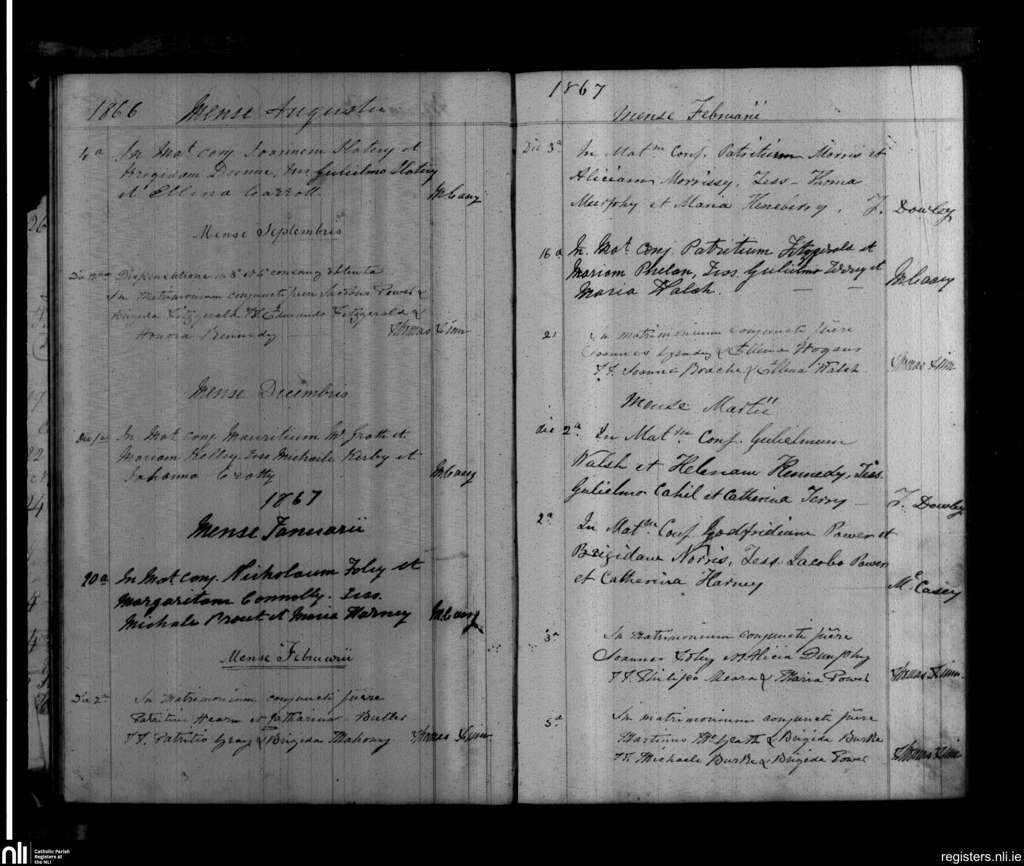 1866 Mense Augusti
4a In Mat. conj. Joannem Slatery et
Brigidam Dunne. Tess. Gulielmo Slatery
et Ellena Carroll. M. Casey
Mense Septembris
Die Dispensatione in 3o et 4o consang obtenta
In matrimonium conjuncti fuere Jacobus Power &
Brigida Fitzgerald TT. Edmundo Fitzgerald &
Honora Kennedy Thomas Finn
Mense Decembris
Die 1a In Mat. conj. Mauritium McGrath et
Mariam Kelley. Tess. Michaele Kerby et
Johanna Crotty M. Casey
1867
Mense Januarii
20a In Mat. conj. Nicholaum Foley et
Margaritam Connolly. Tess.
Michaele Prout et Maria Harney M. Casey
Mense Februarii
Die 2a In matrimonium conjuncti fuere
Patritius Hearn et Catharina Butler
TT. Patritio Gray & Brigida Mahony Thomas Finn
1867
Mense Februarii
Die 3a In Matm Conj. Patritium Morris et
Aliciam Morrissy, Tess - Thoma
Murphy et Maria Heneberry, T. Dowley
16a In Mat. conj. Patritium Fitzgerald et
Mariam Phelan, Tess. Gulielmo Terry et
Maria Walsh. M. Casey
2 In matrimonium conjuncti fuere
Joannes & Ellena Hogan
TT. Joanne Roache & Ellena Walsh Thomas Finn
Mense Martii
die 2a In Matm Conj. Gulielmum
Walsh et Helenam Kennedy, Tess.
Gulielmo Cahil et Catherina Terry T. Dowley
2a In Matm Conj. Godfridum Power et
Brigidam Norris, Tess. Jacobo Power
et Catherina Harney Mc Casey
3a In matrimonium conjuncti fuere
Joannes Foley et Alicia Dunphy
TT. Philippo Meara & Maria Power Thomas Finn
5a In matrimonium conjuncti fuere
Martinus McGrath & Brigida Burke
TT. Michaele Burke & Brigida Power Thomas Finn
nli Catholic Parish
Registers at
the NLI
registers.nli.ie